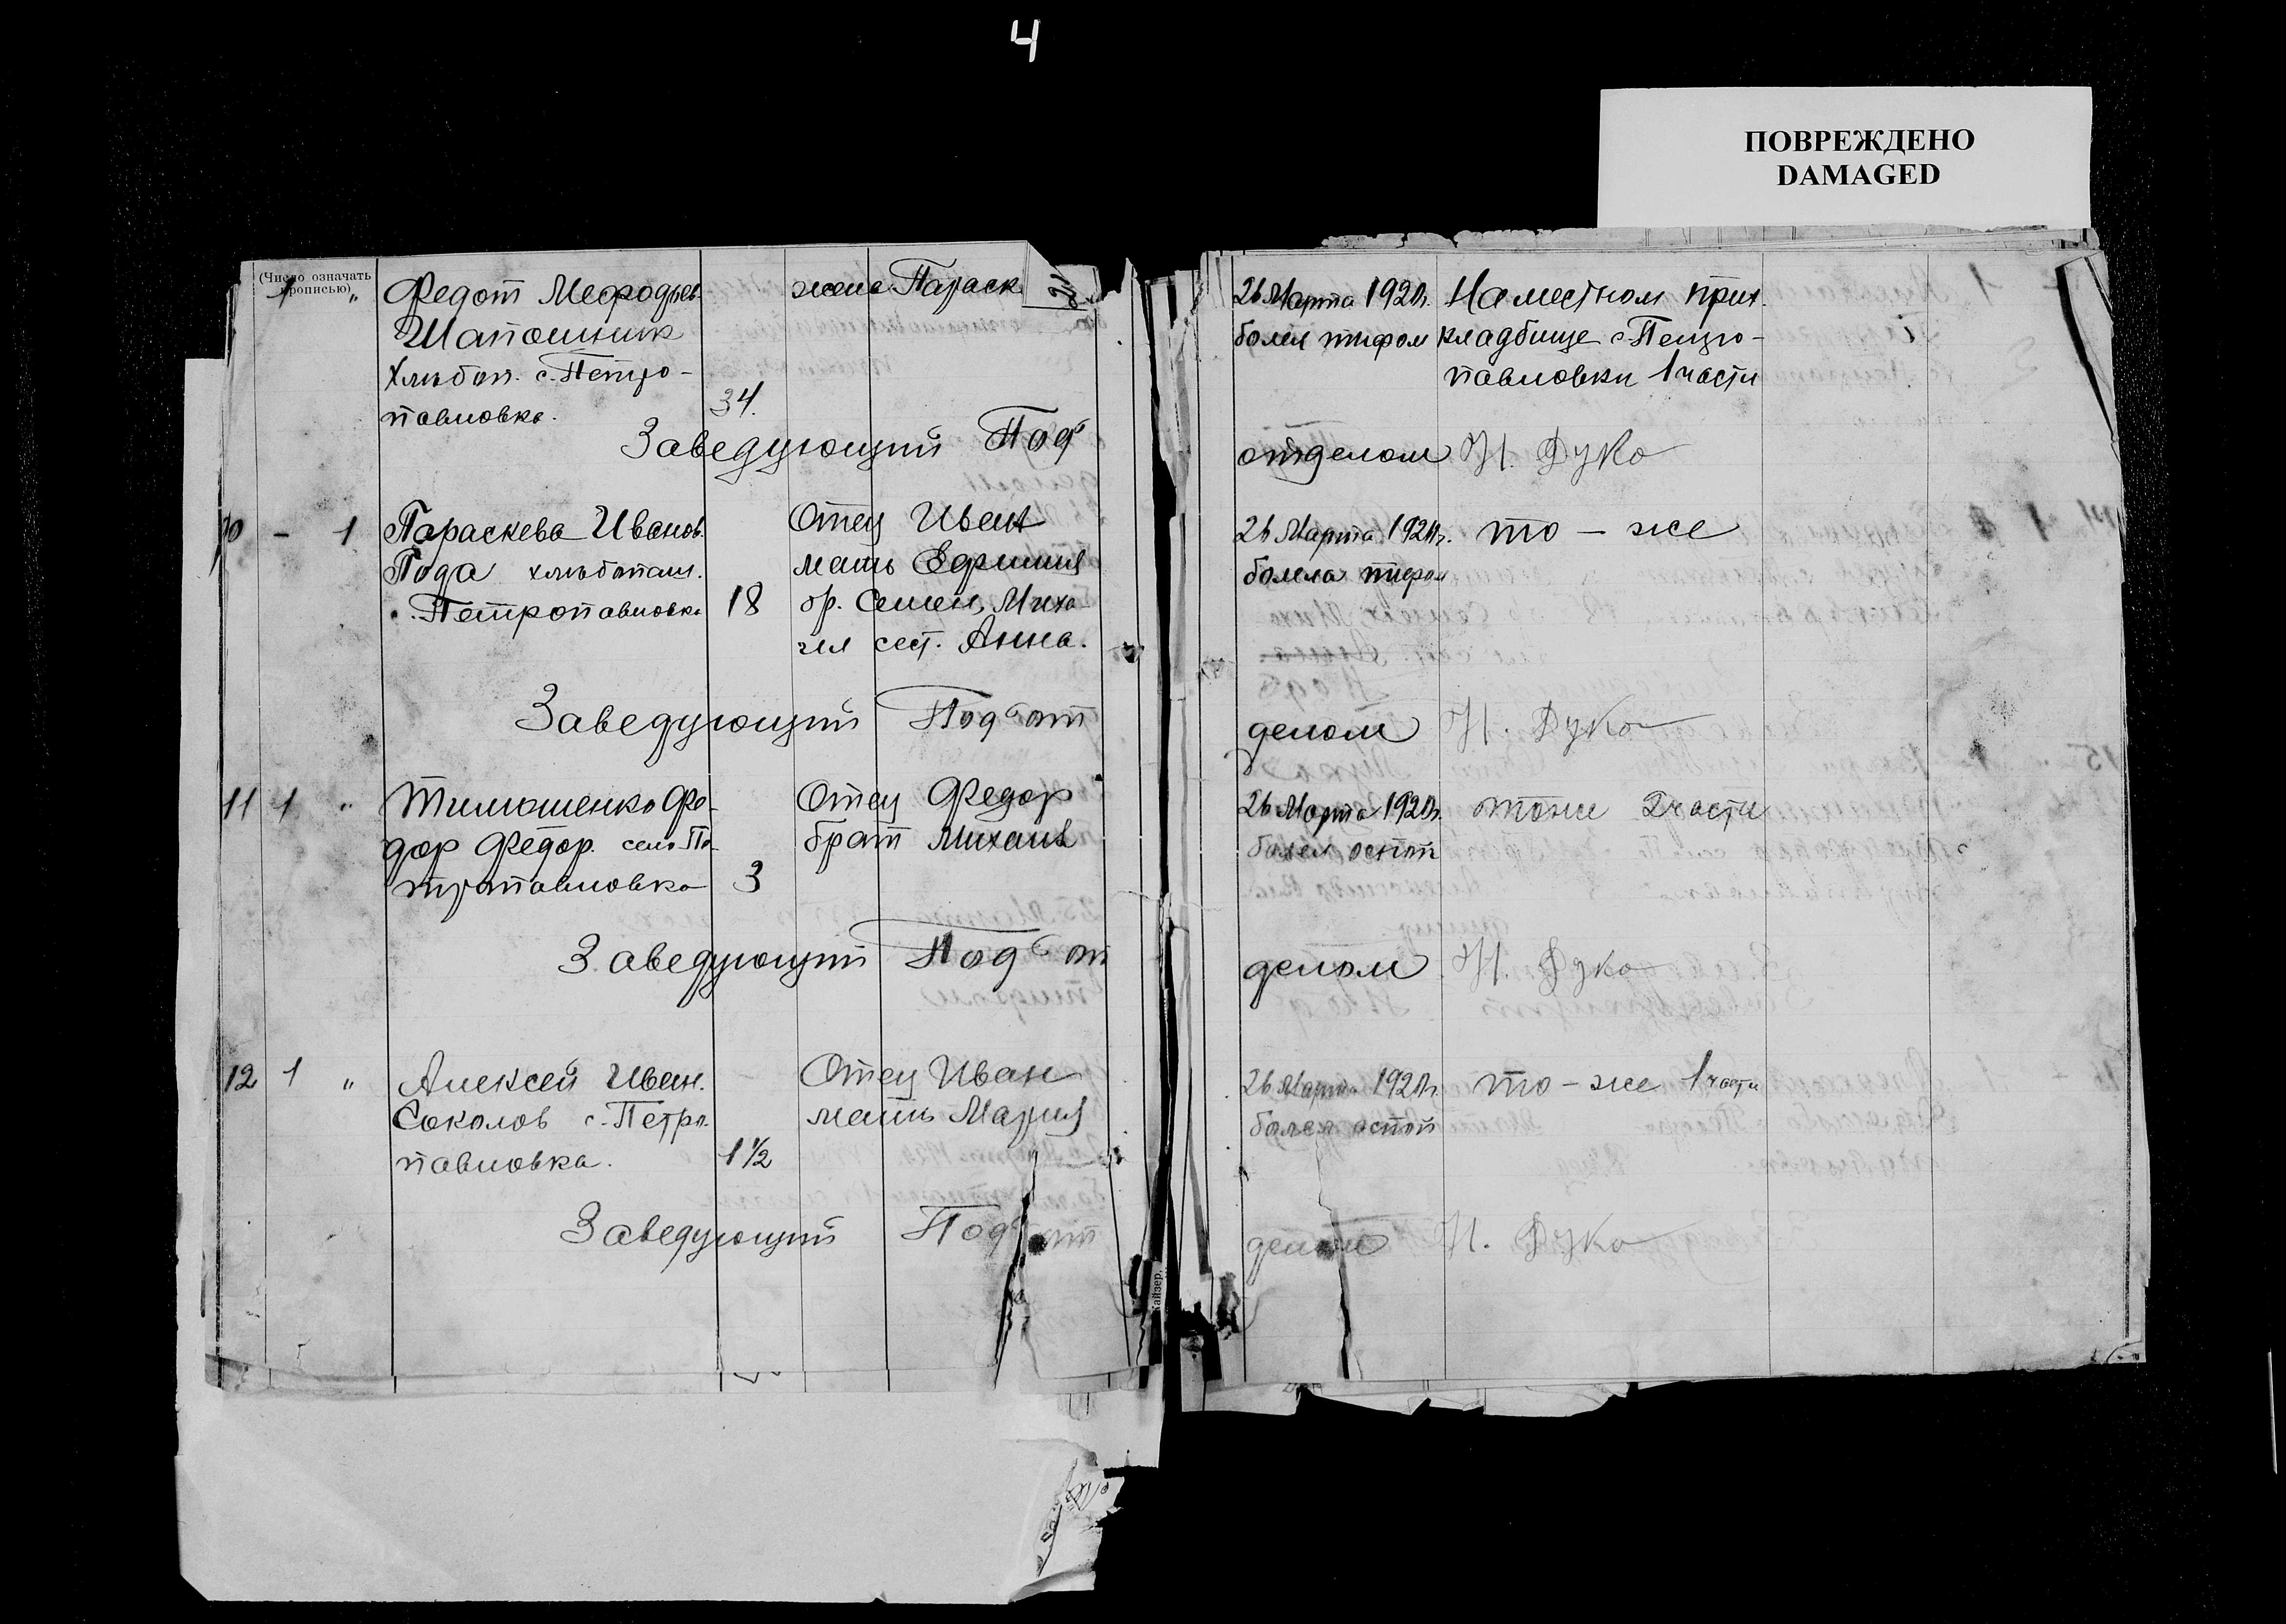 4
ПОВРЕЖДЕНО
DAMAGED
(Число означать
прописью)
1 "
Федот Мефодьев.
Шапошник
Хлебоп. с. Петро-
павловка.
34.
жена Параск
Заведующий Под
26 Марта 1920г.
болел тифом
На местном прих.
кладбище с. Петро-
павловки 1 части
отделом Н. Дуко
10 - 1
Параскева Иванов.
Пода хлебопаш.
с. Петропавловка
18
Отец Иван
мать Ефимия
бр. Семен, Миха
ил сест. Анна.
26 Марта 1920г.
болела тифом
то - же
Заведующий Под от
делом Н. Дуко
11 1 "
Тимошенко Фе-
дор Федор. село Пе-
тропавловка
3
Отец Федор
брат Михаил
26 Марта 1920г.
болел оспой
тоже 2 части
Заведующий Под от
делом Н. Дуко
12 1 "
Алексей Иван.
Соколов с. Петро-
павловка.
1 ½
Отец Иван
мать Мария
26 Марта 1920г.
болел оспой
то - же 1 части
Заведующий Под от
делом Н. Дуко